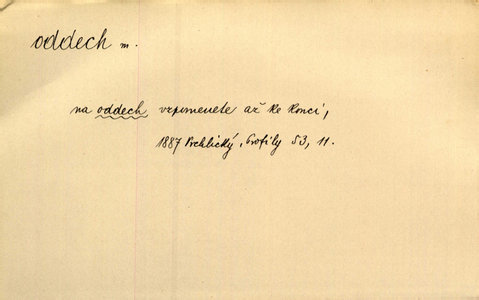 oddech m.
na oddech vzpomenete až ke konci,
1887 Vrchlický, Profily 53, 11.